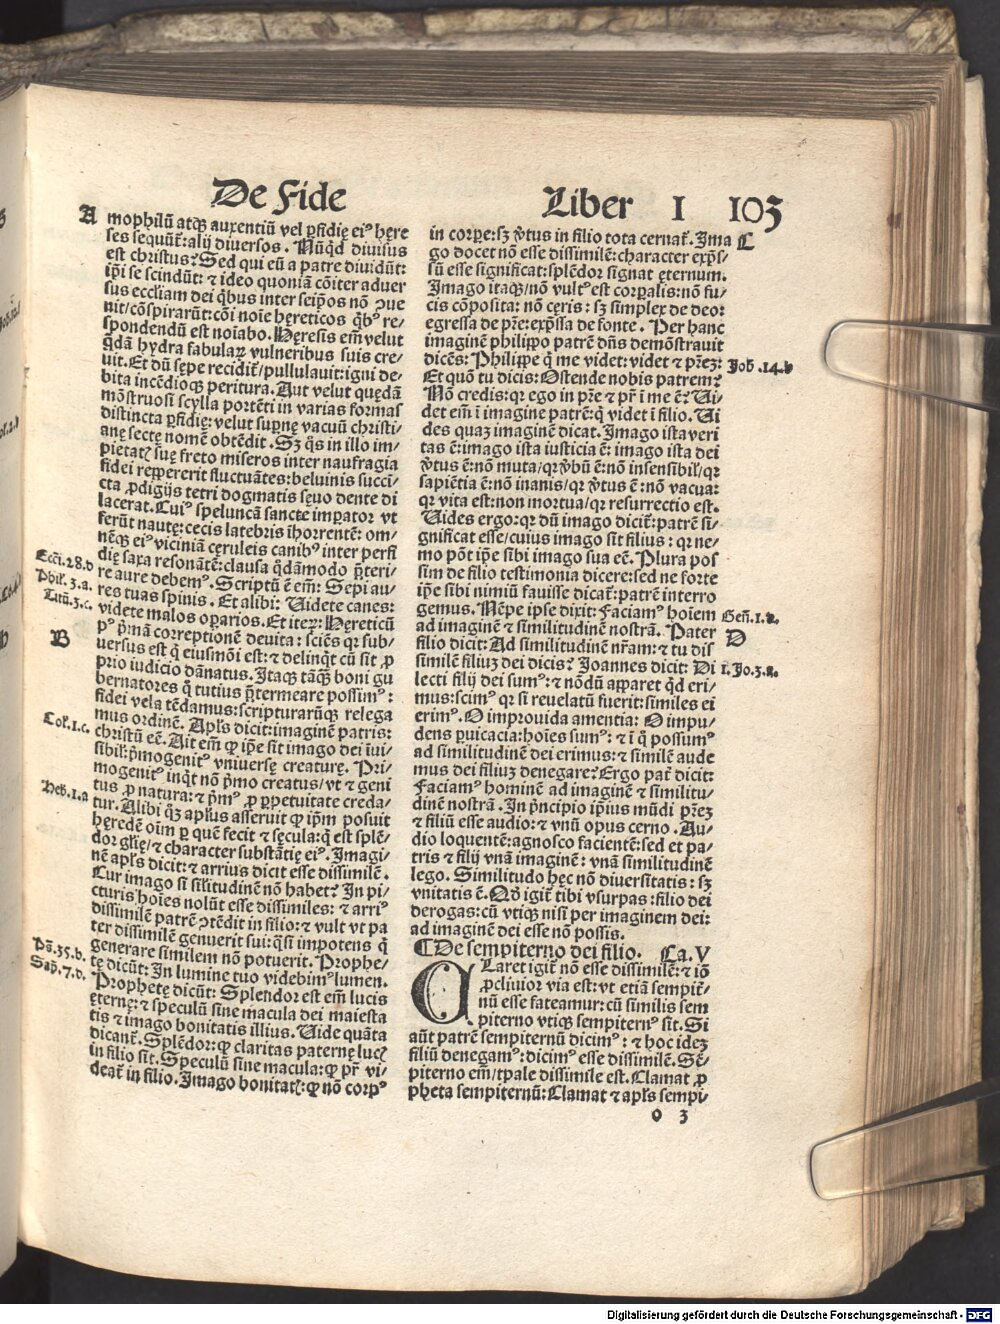 De Fide
Liber I 103
A mophilū atqꝫ auxentiū vel ꝑfidię eiꝰ hęre
ses sequūt̃: alij diversos. Nūqd diuisus
est christus? Sed qui eū a patre diuidūt:
ip̃i se scindūt: ⁊ ideo quoniā cōiter aduer
sus eccl̃iam dei q̃bus inter seip̃os nō ↄue
nit/cōspirarūt: cōi noīe hęreticos q̃bꝰ re/
spondendū est noīabo. Hęresis em̃ velut
q̃dā hydra fabulaꝝ vulneribus suis cre/
uit. Et dū sępe recidit̃/pullulauit: igni de/
bita incēdioqꝫ peritura. Aut velut quędā
mōstruosi scylla portēti in varias formas
distincta ꝑfidię: velut supnę vacuū christi/
anę sectę nomē obtēdit. Sꝫ q̃s in illo im/
pietatꝭ suę freto miseros inter naufragia
fidei repꝑererit fluctuātes: beluinis succi/
cta ꝓdigijs tetri dogmatis sęuo dente di
lacerat. Cuiꝰ speluncā sancte imꝑator vt
ferūt nautę: cecis latebris īhorrentē: om/
nēqꝫ eiꝰ viciniā cęruleis canibꝰ inter perfi
dię saxa resonātē: clausa q̃dāmodo p̱teri/
re aure debemꝰ. Scriptū ē em̃: Sepi au/
res tuas spinis. Et alibi: Uidete canes:
videte malos oꝑarios. Et iteꝝ: Hęreticū
pꝰ p̃mā correptionē deuita: sciēs qꝛ sub/
uersus est q̃ eiusmōi est: ⁊ delinq̃t cū sit ꝓ
prio iudicio dānatus. Itaqꝫ tāqꝫ boni gu
bernatores q̃ tutius p̃termeare possimꝰ:
fidei vela tēdamus: scripturarūqꝫ relega
mus ordinē. Apl̃s dicit: imaginē patris:
christū eē. Ait em̃ ꝙ ip̃e sit imago dei īui/
sibil: p̃mogenitꝰ vniuersę creaturę. Pri/
mogenitꝰ inq̃t nō p̃mo creatus/vt ⁊ geni
tus ꝓ natura: ⁊ p̃mꝰ ꝓ ꝑpetuitate creda/
tur. Alibi qꝫ apl̃us asseruit ꝙ ip̃m posuit
hęredē oīm per quē fecit ⁊ sęcula: q̃ est splē/
dor gl̃ię/⁊ character substātię eiꝰ. Imagi/
nē apl̃s dicit: ⁊ arrius dicit esse dissimilē.
Cur imago si sil̃itudinē nō habet? In pi/
cturis hoīes nolūt esse dissimiles: ⁊ arriꝰ
dissimilē patrē ↄtēdit in filio: ⁊ vult vt pa
ter dissimilē genuerit sui: q̃si impotens q̃
generare similem nō potuerit. Prophe/
tę dicūt: In lumine tuo videbimꝰ lumen.
Prophetę dicūt: Splendor est em̃ lucis
ęternę: ⁊ speculū sine macula dei maiesta
tis ⁊ imago bonitatis illius. Uide quāta
dicant̃. Splēdor: ꝙ claritas paternę lucꝭ
in filio sit. Speculū sine macula: ꝙ pr̃ vi/
deat̃ in filio. Imago bonitatꝭ: ꝙ nō corpꝰ
Ecci. 28. d
Phil. 3. a.
Titū. 3. c.
B
Col. 1. c.
Heb. 1. a
Ps. 35. b.
Sap̃. 7. d.
in corꝑe: sꝫ v̓tus in filio tota cernat̃. Ima C
go docet nō esse dissimilē: character exp̃s/
sū esse significat: splēdor signat ęternum.
Imago itaqꝫ/nō vultꝰ est corꝑalis: nō fu/
cis cōposita: nō cęris: sꝫ simplex de deo:
egressa de pr̃e: exp̃ssa de fonte. Per hanc
imaginē philippo patrē dn̄s demōstrauit
dicēs: Philippe q̃ me videt: videt ⁊ pr̃eꝫ: Joh. 14. b
Et quō tu dicis: Ostende nobis patrem?
Nō credis: qꝛ ego in pr̃e ⁊ pr̃ ī me ē? Ui/
det em̃ ī imagine patrē: q̃ videt ī filio. Ui
des quaꝫ imaginē dicat. Imago ista veri
tas ē: imago ista iusticia ē: imago ista dei
v̓tus ē: nō muta/qꝛ v̓bū ē: nō insensibil̃/qꝛ
sapiētia ē: nō inanis/qꝛ v̓tus ē: nō vacua:
qꝛ vita est: non mortua/qꝛ resurrectio est.
Uides ergo: qꝛ dū imago dicit̃: patrē si/
gnificat esse/cuius imago sit filius: qꝛ ne/
mo pōt ip̃e sibi imago sua eē. Plura pos
sim de filio testimonia dicere: sed ne forte
ip̃e sibi nimiū fauisse dicat̃: patrē interro
gemus. Nēpe ipse dixit: Faciamꝰ hoīem Gen̄. 1. d.
ad imaginē ⁊ similitudinē nostrā. Pater D
filio dicit: Ad similitudinē nr̃am: ⁊ tu dis
similē filiuꝫ dei dicis? Joannes dicit: Di 1. Jo. 3. a.
lecti filij dei sumꝰ: ⁊ nōdū apparet q̃d eri/
mus: scimꝰ qꝛ si reuelatū fuerit: similes ei
erimꝰ. O improuida amentia: O impu/
dens ꝑuicacia: hoīes sumꝰ: ⁊ ī q̃ possumꝰ
ad similitudinē dei erimus: ⁊ similē aude
mus dei filiuꝫ denegare? Ergo pat̃ dicit:
Faciamꝰ hominē ad imaginē ⁊ similitu/
dinē nostrā. In p̃ncipio ip̃ius mūdi pr̃eꝫ
⁊ filiū esse audio: ⁊ vnū opus cerno. Au/
dio loquentē: agnosco facientē: sed et pa/
tris ⁊ filij vnā imaginē: vnā similitudinē
lego. Similitudo hęc nō diuersitatis: sꝫ
vnitatis ē. Qd̓ igit̃ tibi vsurpas: filio dei
derogas: cū vtiqꝫ nisi per imaginem dei:
ad imaginē dei esse nō possis.
¶ De sempiterno dei filio. Ca. V
CLaret igit̃ nō esse dissimilē: ⁊ iō
ꝓcliuior via est: vt etiā sempitē/
nū esse fateamur: cū similis sem
piterno vtiqꝫ sempiternꝰ sit. Si
aūt patrē sempiternū dicimꝰ: ⁊ hoc ideꝫ
filiū denegamꝰ: dicimꝰ esse dissimilē. Sē/
piterno em̃/tp̃ale dissimile est. Clamat ꝓ
pheta sempiternū: Clamat ⁊ apl̃s sempi/
o 3
Digitalisierung gefördert durch die Deutsche Forschungsgemeinschaft - DFG